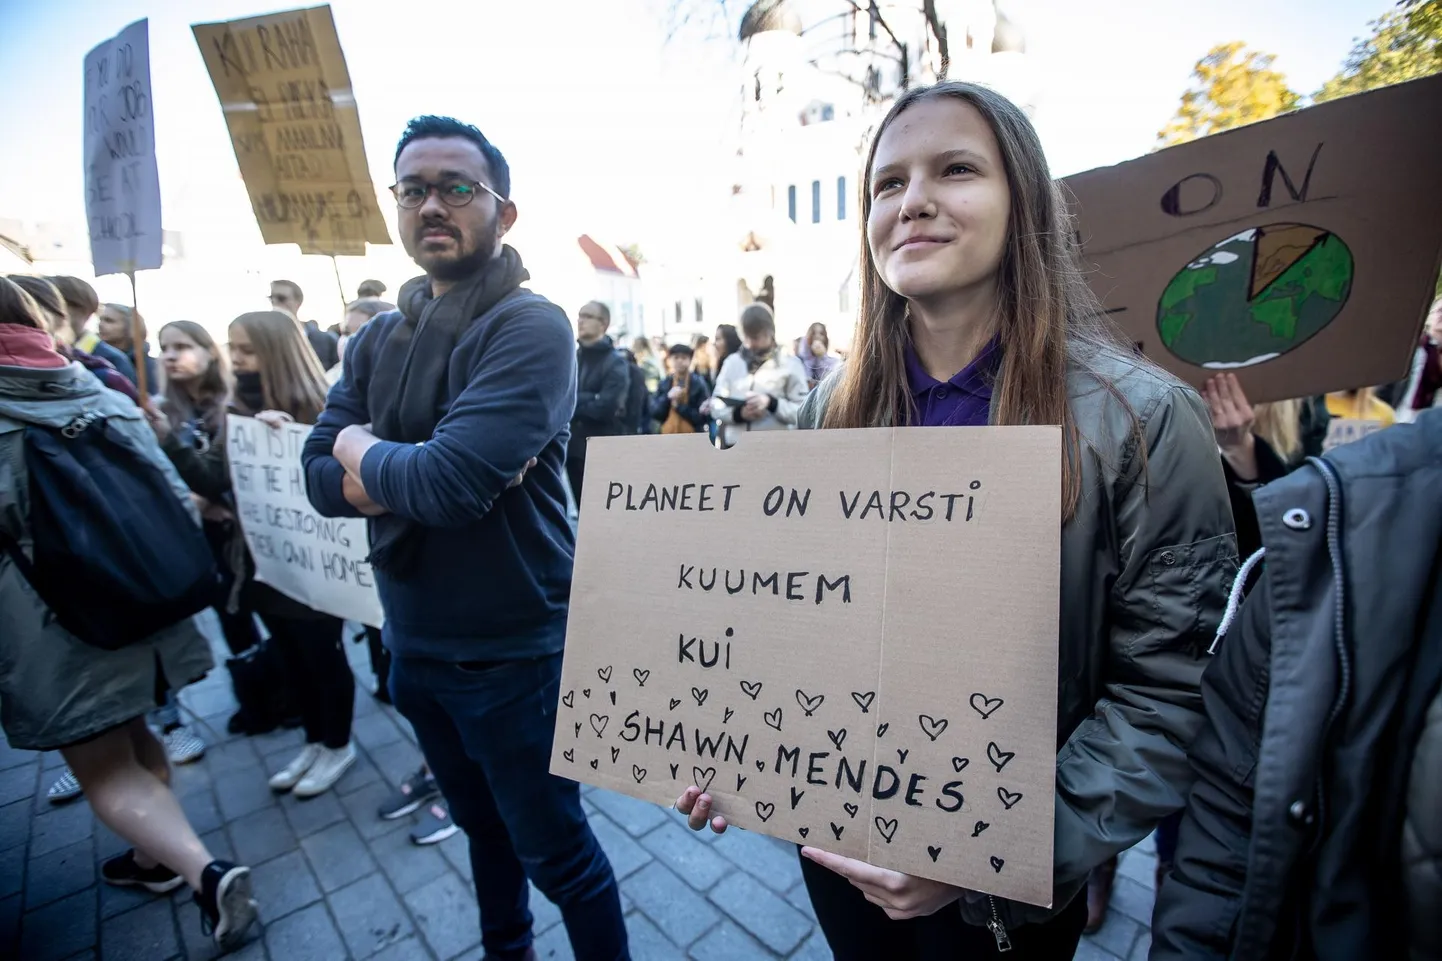 IF YOU DID
YOUR JOB
WOULD
BE AT
SCHOOL
KUI RAHA
HOW IS IT
THAT THE
ARE DESTROYING
THEIR OWN HOME
ON
PLANEET ON VARSTI
KUUMEM
KUI
SHAWN MENDES